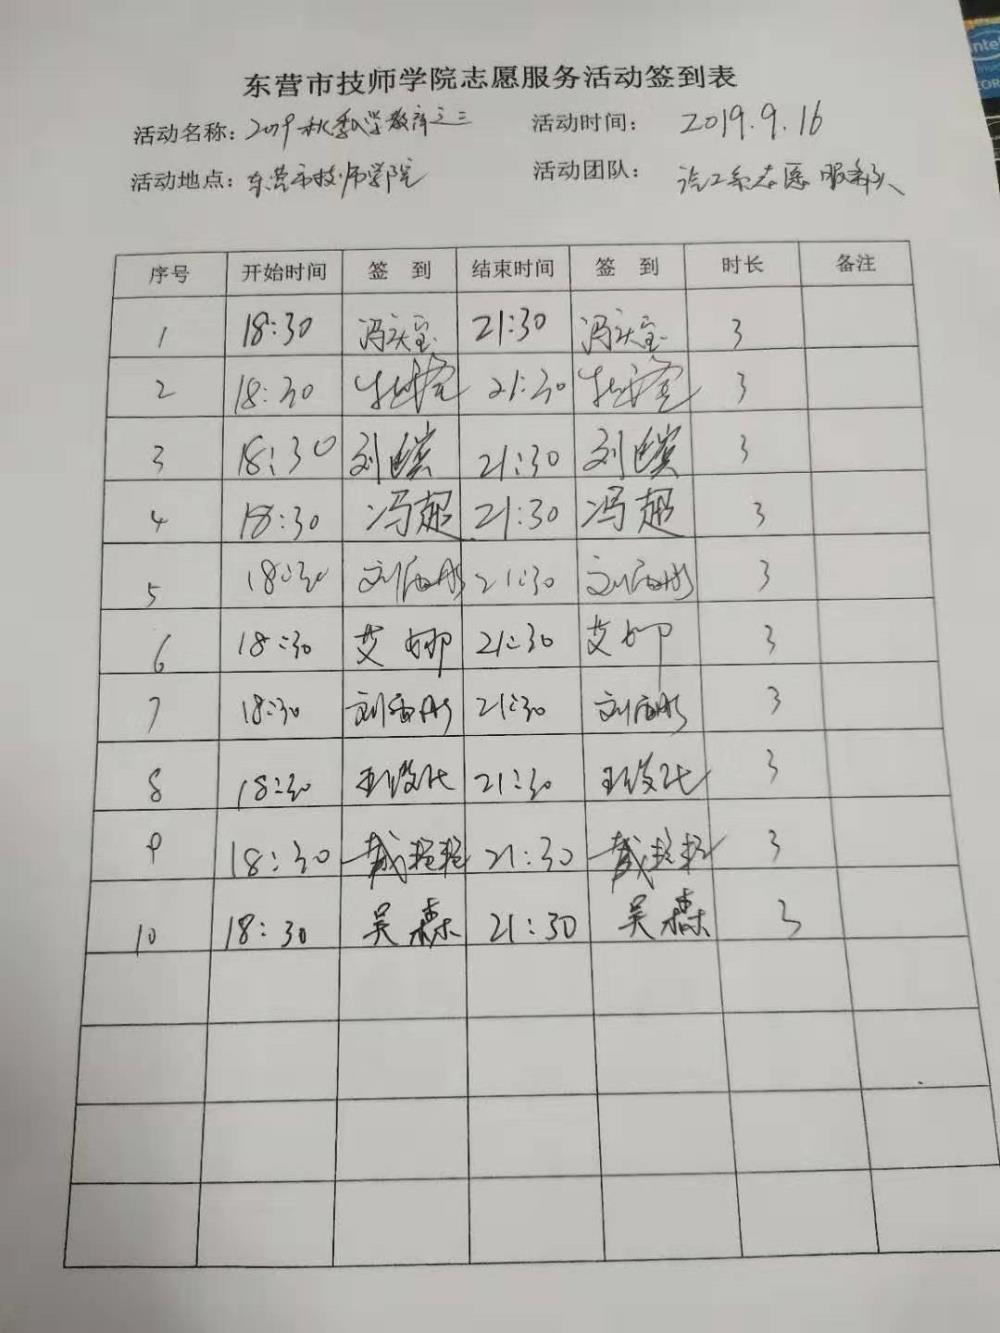 intel
CORE
东营市技师学院志愿服务活动签到表
活动名称：2019秋季入学教育之三 活动时间： 2019.9.16
活动地点：东营市技师学院 活动团队： 汽工系志愿服务队
序号 开始时间 签 到 结束时间 签 到 时长 备注
1 18:30 冯庆宝 21:30 冯庆宝 3
2 18:30 21:30 3
3 18:30 刘 21:30 刘 3
4 18:30 冯超 21:30 冯超 3
5 18:30 刘雨彤 21:30 刘雨彤 3
6 18:30 艾娜 21:30 艾娜 3
7 18:30 刘雨彤 21:30 刘雨彤 3
8 18:30 王俊 21:30 王俊 3
9 18:30 戴 21:30 戴 3
10 18:30 吴森 21:30 吴森 3